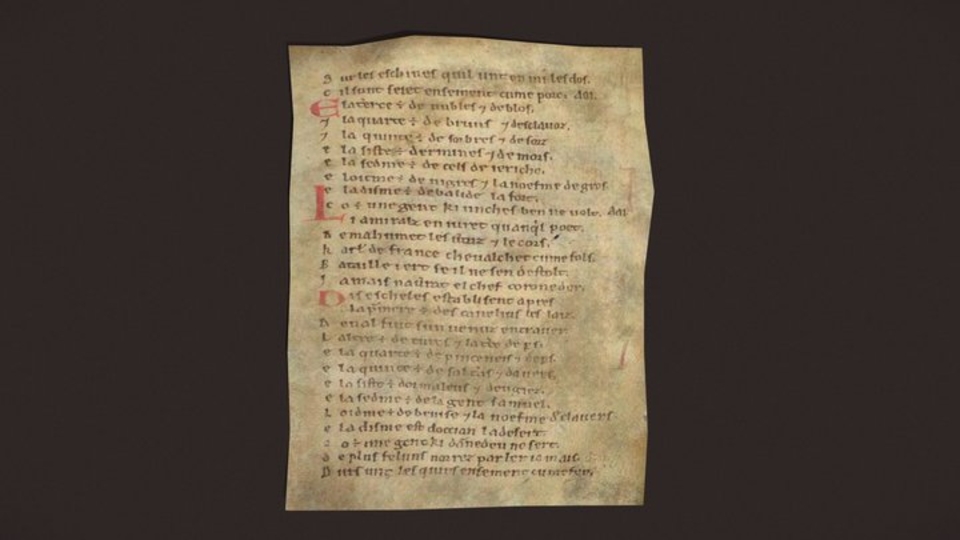 S ur les eschines quil unt en mi les dos.
c il sunt seiet ensement cume porc. aoi.
E la terce ÷ de nubles ⁊ de blos.
⁊ la quarte ÷ de bruns ⁊ desclavoz.
⁊ la quinte ÷ de sorbres ⁊ de sorz
e la siste ÷ dermines ⁊ de mors.
e la sedme ÷ de cels de ieriche.
e loitme ÷ de nigres ⁊ la noefme de gros
e la disme ÷ de balide la fort.
c o ÷ une gent ki unches ben ne volt. aoi
L i amiralz en iuret quanql poet.
de mahumet les ⁊ le cors.
k arl de france chevalchet cume fols.
B ataille i ert se il ne sen destolt.
J amais naurat el chef corone dor.
D is escheles establisent apres
la pmere ÷ des canelius les laiz.
D e val fuit sun venuz en traver
L altre ÷ de turcs ⁊ la
e la quarte ÷ de pinceneis ⁊ de ps.
e la quinte ÷ de solteras ⁊ davers.
e la siste ÷ dormaleus ⁊ deugiez.
e la sedme ÷ de la gent samuel.
L oidme ÷ de bruise ⁊ la noefme desclavers
e la disme est doccian la desert.
c o ÷ une gent ki dãnedeu ne sert.
d e plus feluns norrez parler ia mais.
D urs unt les quirs ensement cume fer.